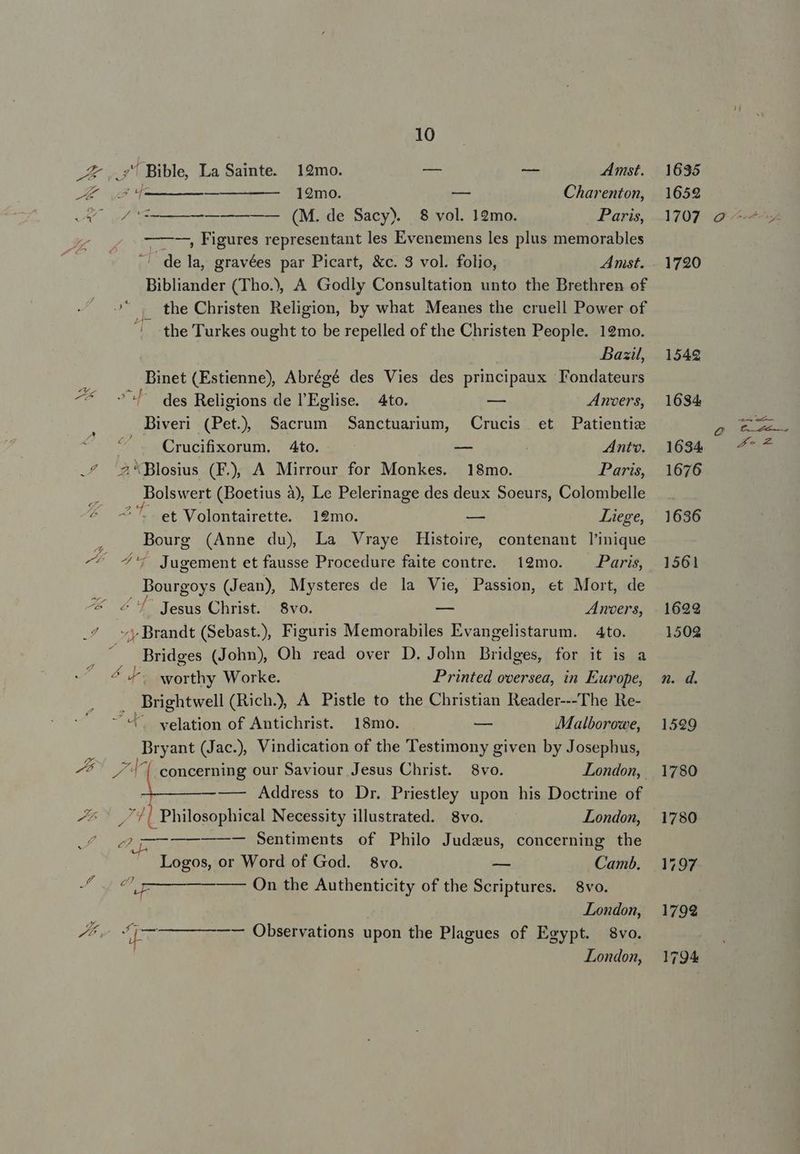 10
Bible, La Sainte. 12mo. — — Amst. 1635
——— 12mo. — Charenton, 1652
——— (M. de Sacy). 8 vol. 12mo. Paris, 1707
———, Figures representant les Evenemens les plus memorables
de la, gravées par Picart, &c. 3 vol. folio, Amst. 1720
Bibliander (Tho.), A Godly Consultation unto the Brethren of
the Christen Religion, by what Meanes the cruell Power of
the Turkes ought to be repelled of the Christen People. 12mo.
Bazil, 1542
Binet (Estienne), Abrégé des Vies des principaux Fondateurs
des Religions de l'Eglise. 4to. — Anvers, 1634
Biveri (Pet.), Sacrum Sanctuarium, Crucis et Patientiæ
Crucifixorum. 4to. — Antv. 1634
Blosius (F.), A Mirrour for Monkes. 18mo. Paris, 1676
Bolswert (Boetius à), Le Pelerinage des deux Soeurs, Colombelle
et Volontairette. 12mo. — Liege, 1636
Bourg (Anne du), La Vraye Histoire, contenant l'inique
Jugement et fausse Procedure faite contre. 12mo. Paris, 1561
Bourgoys (Jean), Mysteres de la Vie, Passion, et Mort, de
Jesus Christ. 8vo. — Anvers, 1622
Brandt (Sebast.), Figuris Memorabiles Evangelistarum. 4to. 1502
Bridges (John), Oh read over D. John Bridges, for it is a
worthy Worke. Printed oversea, in Europe, n. d.
Brightwell (Rich.), A Pistle to the Christian Reader---The Re-
velation of Antichrist. 18mo. — Malborowe, 1529
Bryant (Jac.), Vindication of the Testimony given by Josephus,
concerning our Saviour Jesus Christ. 8vo. London, 1780
——— Address to Dr. Priestley upon his Doctrine of
Philosophical Necessity illustrated. 8vo. London, 1780
——— Sentiments of Philo Judæus, concerning the
Logos, or Word of God. 8vo. — Camb. 1797
——— On the Authenticity of the Scriptures. 8vo.
London, 1792
——— Observations upon the Plagues of Egypt. 8vo.
London, 1794